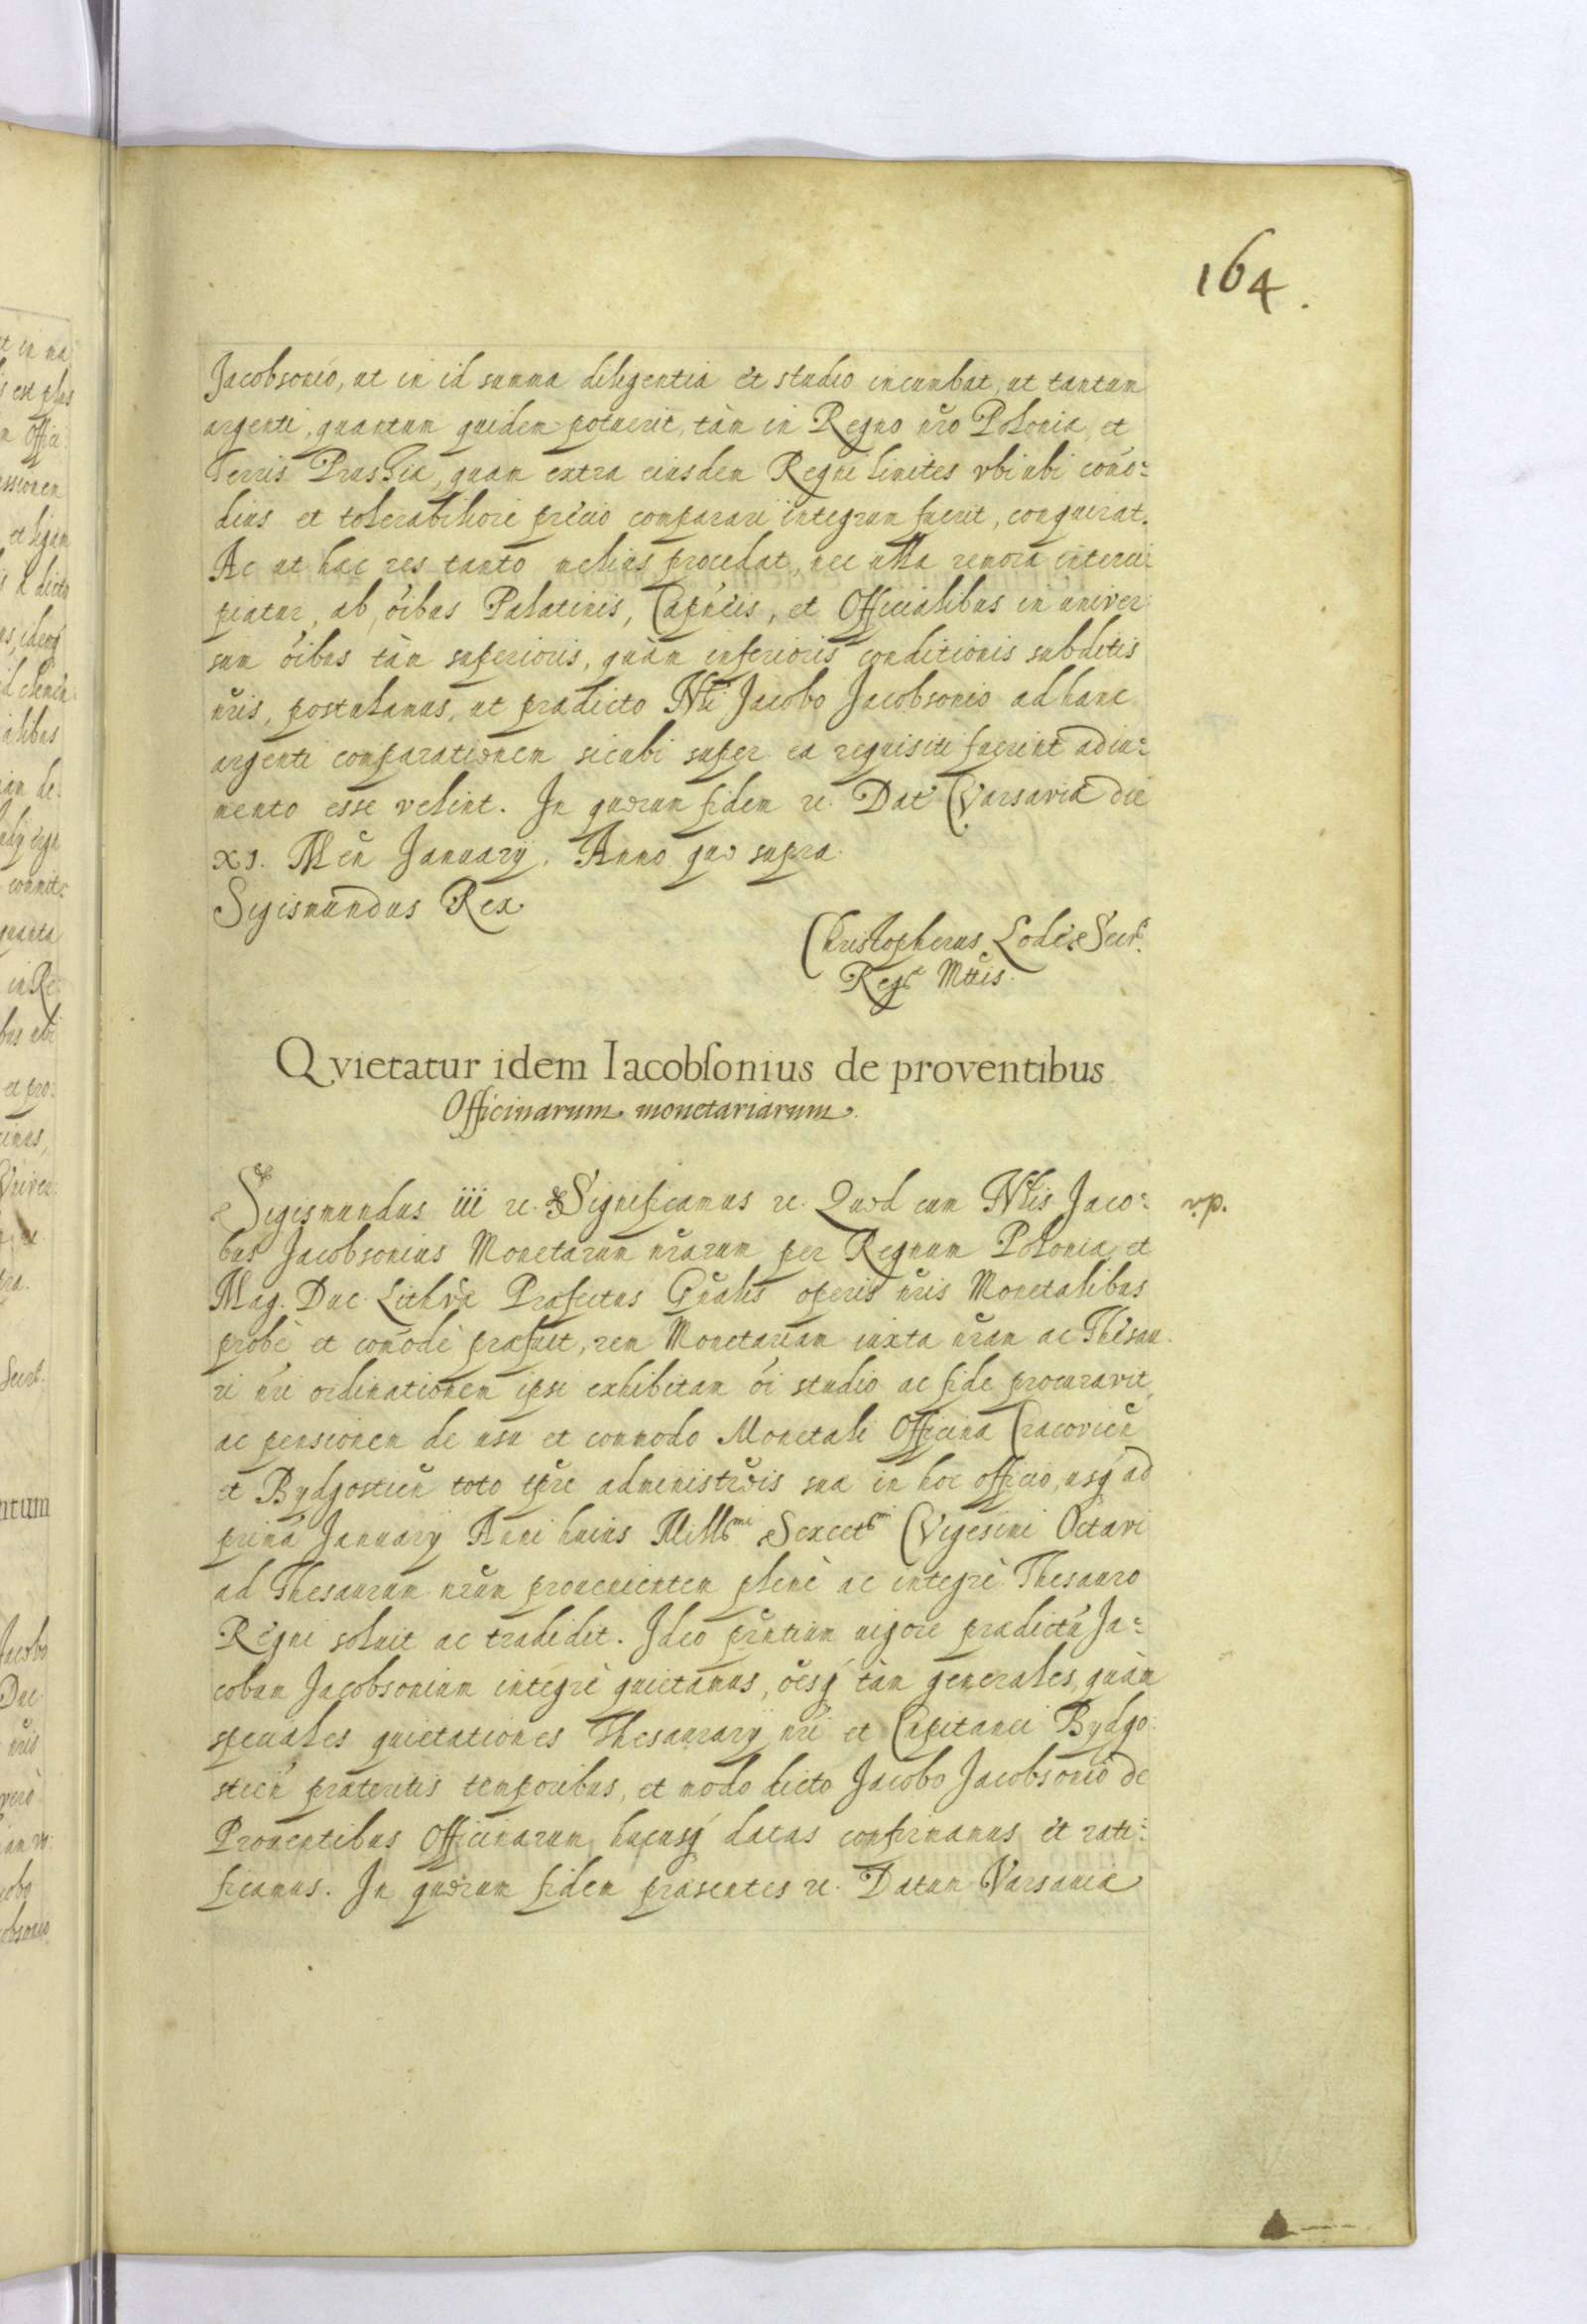 164.
Jacobsonio, ut in id summa diligentia et studio incumbat, ut tantum
argenti, quantum quidem potuerit, tàm in Regno nro Polonia, et
Terris Prussia, quam extra eiusdem Regni limites vbi ubi como=
dius et tolerabiliori précio comparari integrum fuerit, conquirat.
Ac ut hac res tanto melius procedat, nec ulla remora interci
piatur, ab oibus Palatinis, Capneis, et Officialibus in univer
sum oibus tàm superioris, quàm inferioris conditionis subditis
nris, postulamus, ut pradicto Nli Jacobo Jacobsonio ad hanc
argenti comparationem sicubi super ea requisiti fuerint adiu=
mento esse velint. In quorum fidem rc. Dat Varsavia die
xj. Men January. Anno quo supra.
Sigismundus Rex
Christopherus Lodz Secr.
Reg Mttis.
Qvietatur idem Iacobsonius de proventibus
Officinarum monetariarum.
Sigismundus iii rc. Significamus rc. Quod cum Nlis Jaco=
v.p.
bus Jacobsonius Monetarum nrarum per Regnum Polonia et
Mag. Duc. Lithva Prafectus Gnalis operis nris Monetalibus
probè et comodè prafuit, rem Monetariam iuxta nram ac Thesau
ri nri ordinationem ipsi exhibitam oi studio ac fide procuravit,
ac pensionem de usu et commodo Monetali Officina Cracovien
et Bydgostien toto tpre administrois sua in hoc officio, usq ad
prima January Anni huius Millmi Sexcetmi Vigesimi Octavi
ad Thesaurum nrum prouenientem plenè ac integrè Thesauro
Regni soluit ac tradidit. Ideo prntium uigore pradictu Ja=
cobum Jacobsonium integrè quietamus, oesq tàm generales, quàm
speciales quietationes Thesaurary nri et Capitanei Bydgo=
stien prateritis temporibus, et modo dicto Jacobo Jacobsonio de
Prouentibus Officinarum hucusq datas confirmamus et rati=
ficamus. In quorum fidem prasentes rc. Datum Varsauia